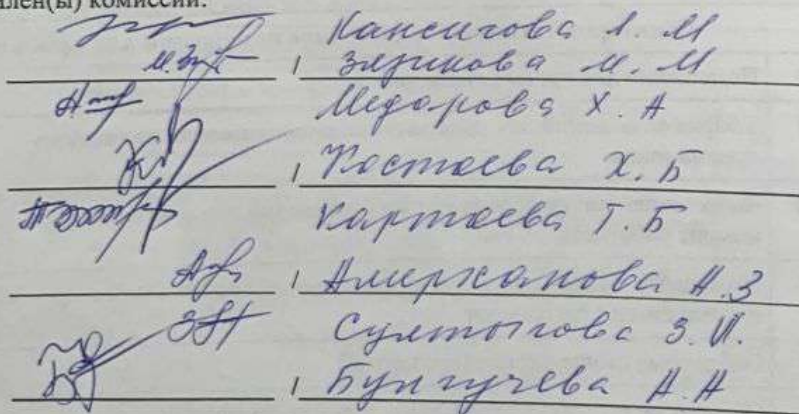 член(ы) комиссии:
Кансигова А. М
м.Зяз / Зязикова М. М
Медарова Х. А
/ Костоева Х. Б
Картоева Т. Б
/ Амерханова А. З
Султыгова З. И.
/ Булгучева А. А